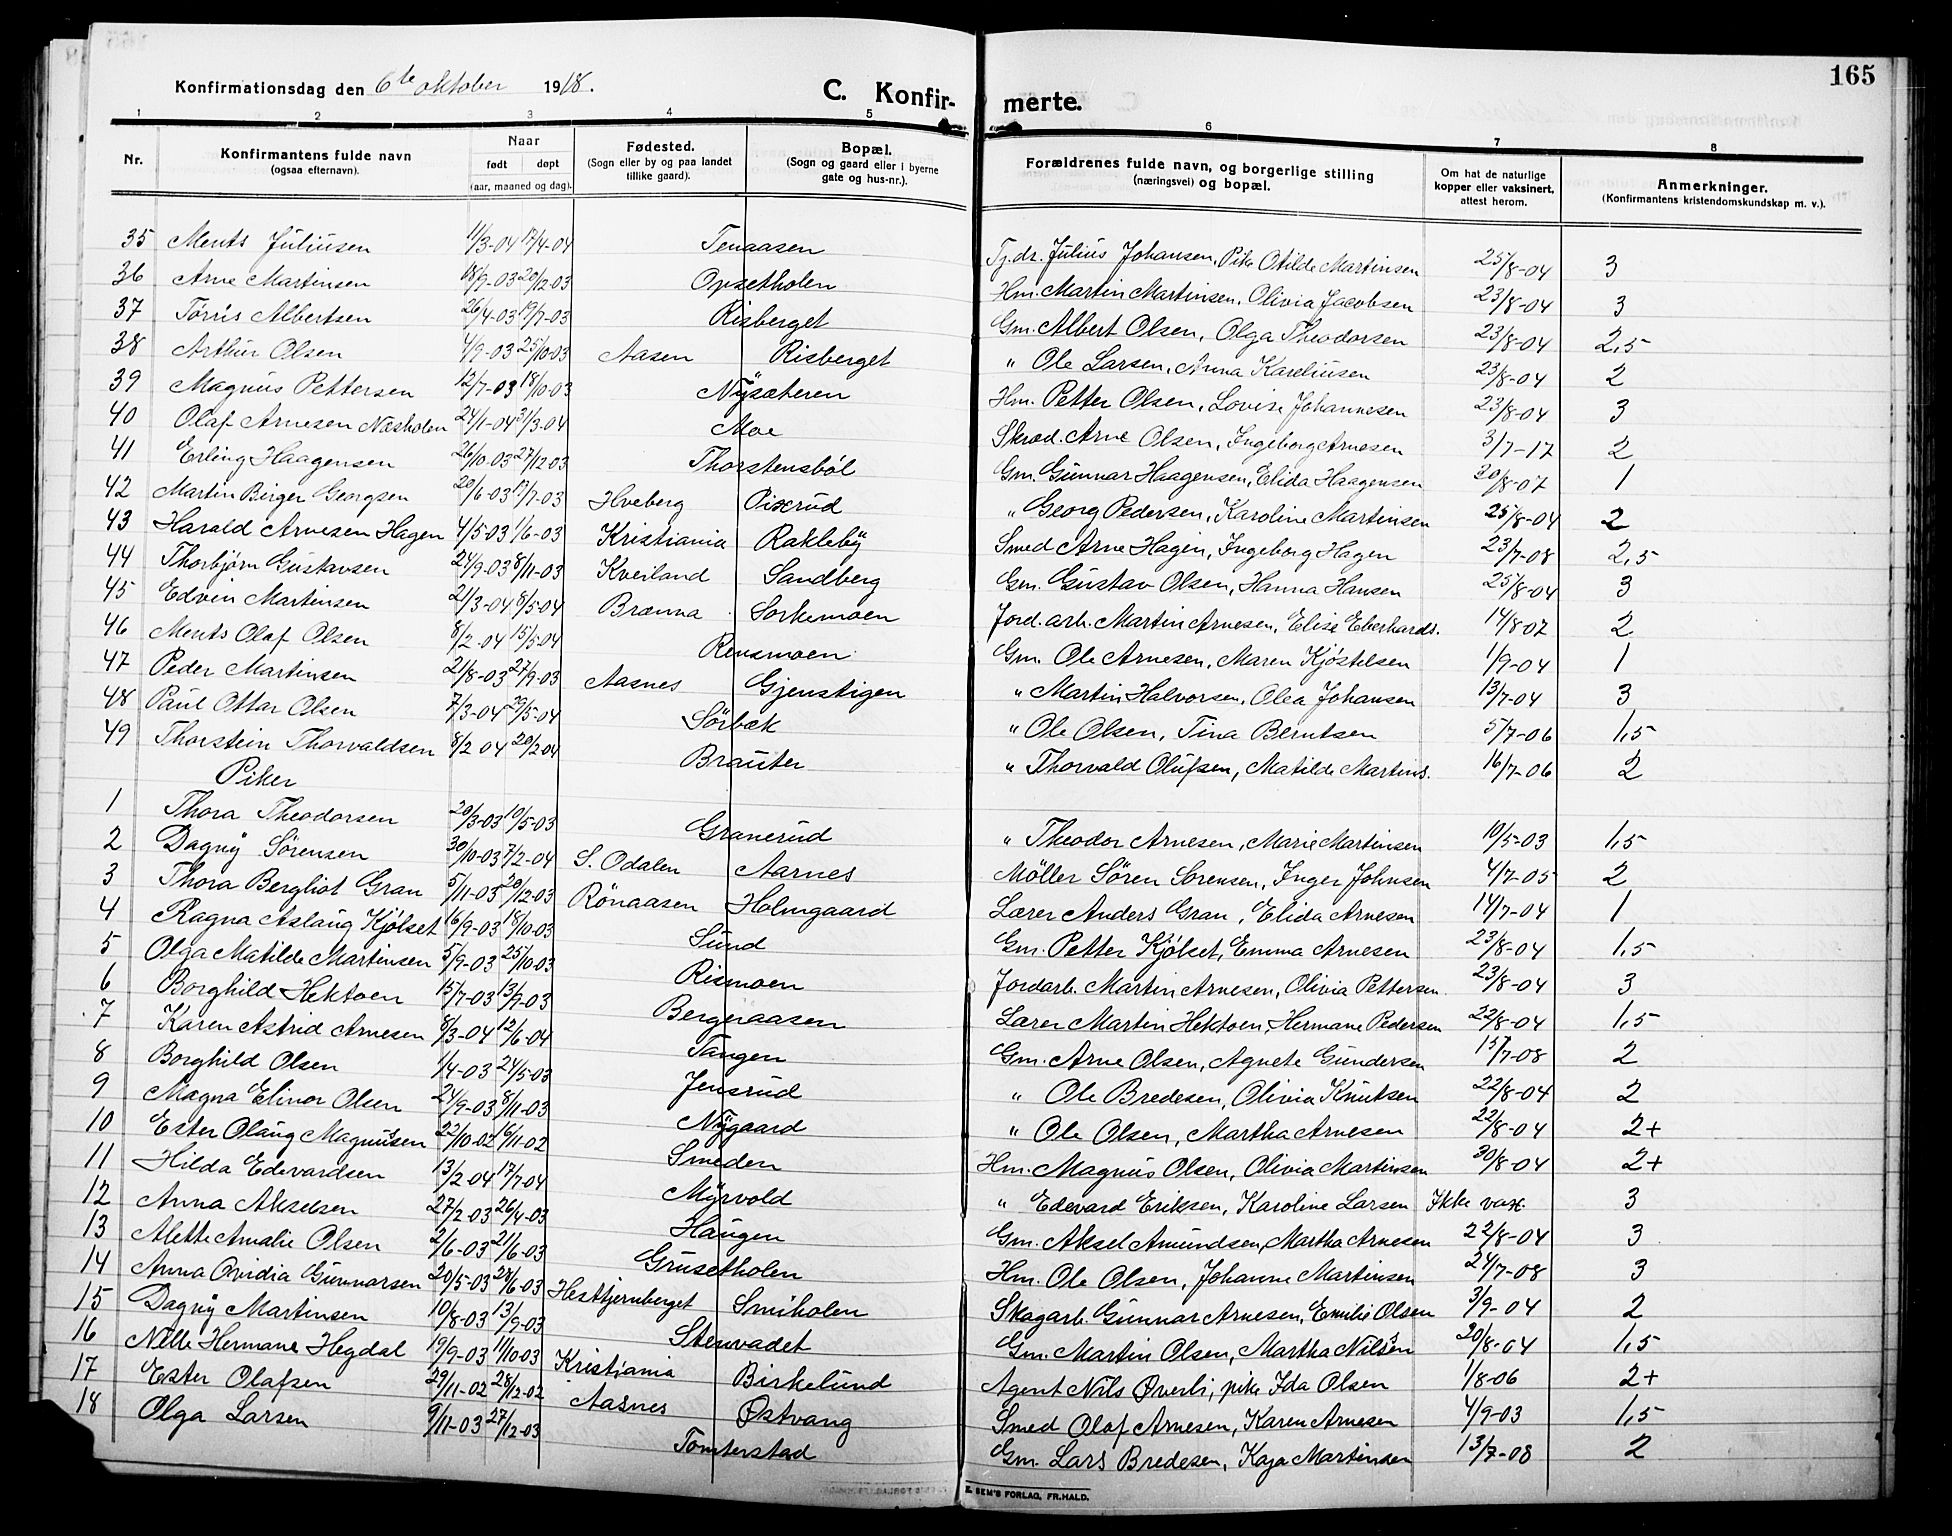 165
Konfirmationsdag den 6te oktober 1918.
C. Konfirmerte.
1 2 3 4 5 6 7 8
Nr. Konfirmantens fulde navn (ogsaa efternavn). Naar født døpt (aar, maaned og dag). Fødested. (Sogn eller by og paa landet tillike gaard). Bopæl. (Sogn og gaard eller i byerne gate og hus-nr.). Forældrenes fulde navn, og borgerlige stilling (næringsvei) og bopæl. Om hat de naturlige kopper eller vaksinert, attest herom. Anmerkninger. (Konfirmantens kristendomskundskap m. v.).
35 Ments Juliusen 11/3-04 17/4-04 Tenaasen Tj.dr. Julius Johansen, Pike Otilde Martinsen 25/8-04 3
36 Arne Martinsen 18/9-03 20/12-03 Opsetholen Hm. Martin Martinsen, Olivia Jacobsen 23/8-04 3
37 Torris Albertsen 26/4-03 19/7-03 Risberget Gm. Albert Olsen, Olga Theodorsen 23/8-04 2,5
38 Arthur Olsen 4/9-03 25/10-03 Aasen Risberget " Ole Larsen, Anna Kareliusen 23/8-04 2
39 Magnus Pettersen 12/7-03 18/10-03 Nysæteren Hm. Petter Olsen, Lovise Johannesen 23/8-04 3
40 Olaf Arnesen Næsholen 24/1-04 31/3-04 Moe Skræd. Arne Olsen, Ingeborg Arnesen 3/7-17 2
41 Erling Haagensen 26/10-03 27/12-03 Thorstensböl Gm. Gunnar Haagensen, Elida Haagensen 20/8-07 1
42 Martin Birger Georgsen 20/6-03 12/7-03 Hveberg Piксrud " Georg Pedersen, Karoline Martinsen 25/8-04 2
43 Harald Arnesen Hagen 4/5-03 1/6-03 Kristiania Rakleby Smed Arne Hagen, Ingeborg Hagen 23/7-08 2,5
44 Thorbjørn Gustavsen 24/9-03 8/11-03 Kveiland Sandberg Gm. Gustav Olsen, Hanna Hansen 25/8-04 3
45 Edvin Martinsen 21/3-04 8/5-04 Brænna Sorkemoen Jord.arb. Martin Arnesen, Elise Eberhards. 14/8-07 2
46 Ments Olaf Olsen 8/2-04 15/5-04 Rensmoen Gm. Ole Arnesen, Maren Kjöstelsen 1/9-04 1
47 Peder Martinsen 21/8-03 27/9-03 Aasnes Gjenstigen " Martin Halvorsen, Olea Johansen 13/7-04 3
48 Paul Ottar Olsen 7/3-04 29/5-04 Sörbæk " Ole Olsen, Tina Berntsen 5/7-06 1,5
49 Thorstein Thorvaldsen 8/2 04 20/2 04 Brauter " Thorvald Olufsen, Matilde Martins. 16/7-06 2
Piker
1 Thora Theodorsen 20/3-03 10/5-03 Granerud " Theodor Arnesen, Marie Martinsen 10/5-03 1,5
2 Dagny Sörensen 30/10-03 7/2-04 S. Odalen Aarnes Möller Sören Sorensen, Inger Johnsen 4/7-05 2
3 Thora Bergliot Gran 5/11-03 20/12-03 Rönaasen Holmgaard Lærer Anders Gran, Elida Arnesen 14/7-04 1
4 Ragna Aslaug Kjölset 16/9-03 18/10-03 Sund Gm. Petter Kjölset, Emma Arnesen 23/8-04 1,5
5 Olga Matilde Martinsen 5/9-03 25/10-03 Rismoen Jordarb. Martin Arnesen, Olivia Pettersen 23/8-04 3
6 Borghild Hektoen 15/7-03 13/9-03 Bergeraasen Lærer Martin Hektoen, Hermane Pedersen 22/8-04 1,5
7 Karen Astrid Arnesen 8/3-04 12/6-04 Tangen Gm. Arne Olsen, Agnete Gundersen 15/7-08 2
8 Borghild Olsen 1/4-03 24/5-03 Jensrud " Ole Bredesen, Olivia Knutsen 22/8-04 2
9 Magna Elinor Olsen 24/9-03 8/11-03 Nygaard " Ole Olsen, Martha Arnesen 22/8-04 2+
10 Ester Olaug Magnussen 22/10-02 16/11-02 Smeden Hm. Magnus Olsen, Olivia Martinsen 30/8-04 2+
11 Hilda Edevardsen 13/2-04 17/7-04 Myrvold " Edevard Eriksen, Karoline Larsen Ikke vax. 3
12 Anna Akselsen 27/2-03 26/4-03 Haugen Gm. Aksel Amundsen, Martha Arnesen 22/8-04 3
13 Alette Amalie Olsen 2/6-03 21/6-03 Grusetholen Hm. Ole Olsen, Johanne Martinsen 24/7-08 3
14 Anna Ovidia Gunnarsen 20/5-03 28/6-03 Hestbjernberget Smiholen Skogarb. Gunnar Arnesen, Emilie Olsen 3/9-04 2
15 Dagny Martinsen 10/8-03 13/9-03 Stenvadet Gm. Martin Olsen, Martha Nilsen 20/8-04 1,5
16 Nelle Hermane Hegdal 19/9-03 11/10-03 Kristiania Birkelund Agent Nils Øverli, pike Ida Olsen 1/8-06 2+
17 Ester Olafsen 29/11-02 28/12-02 Aasnes Østvang Smed Olof Arnesen, Karen Arnesen 4/9-03 1,5
18 Olga Larsen 9/11-03 27/12-03 Tomterstad Gm. Lars Bredesen, Kaja Martinsen 13/7-08 2
E. SEM'S FORLAG, FR.HALD.